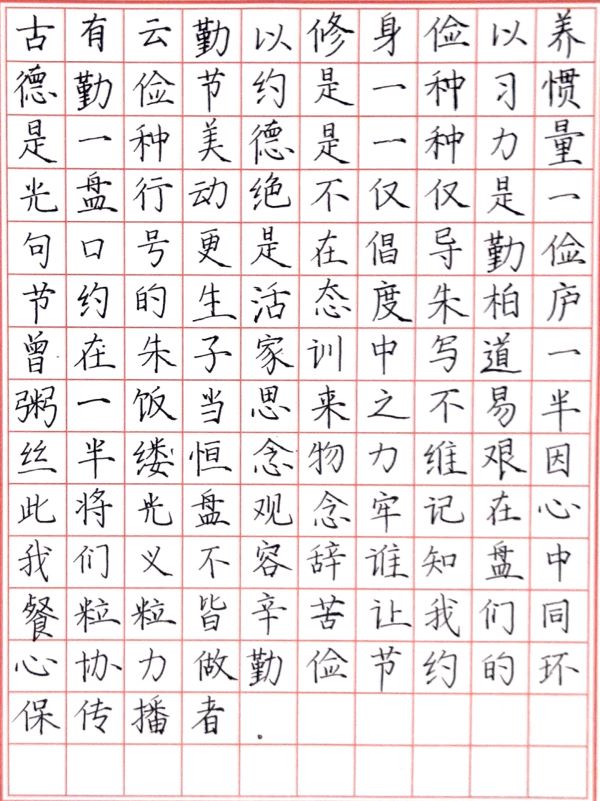 古有云勤以修身俭以养
德勤俭节约是一种习惯
是一种美德是一种力量
光盘行动绝不仅仅是一
句口号更是在倡导勤俭
节约的生活态度朱柏庐
曾在朱子家训中写道一
粥一饭当思来之不易半
丝半缕恒念物力维艰因
此将光盘观念牢记在心
我们义不容辞谁知盘中
餐粒粒皆辛苦让我们同
心协力做勤俭节约的环
保传播者.